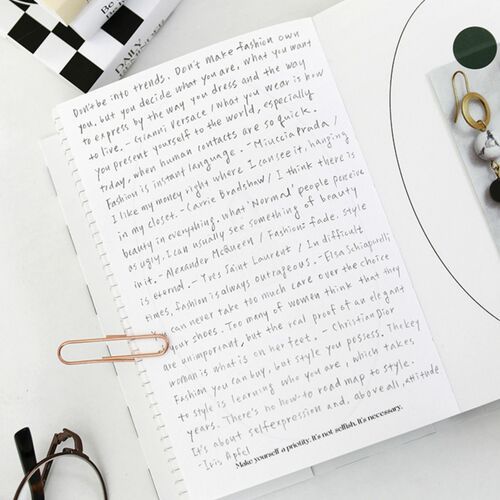 Be
DAILY
Don't be into trends. Don't make fashion own
you, but you decide what you are, what you want
to express by the way you dress and the way
to live. - Gianni Versace / what you wear is how
you present yourself to the world, especially
today, when human contacts are so quick.
Fashion is instant language. - Miuccia Prada /
I like my money right where I can see it, hanging
in my closet. - Carrie Bradshaw / I think there is
beauty in everything. what 'Normal' people perceive
as ugly, I can usually see something of beauty
in it. - Alexander McQueen / Fashion: fade. style
is eternal. - Yves Saint Laurent / In difficult
times, fashion is always outrageous. - Elsa Schiaparelli
can never take too much care over the choice
your shoes. Too many of women think that they
are unimportant, but the real proof of an elegant
woman is what is on her feet. - Christian Dior
Fashion you can buy, but style you possess. The key
to style is learning who you are, which takes
years. There's no how-to road map to style.
It's about self expression and, above all, attitude
- Iris Apfel
Make yourself a priority. It's not selfish. It's necessary.